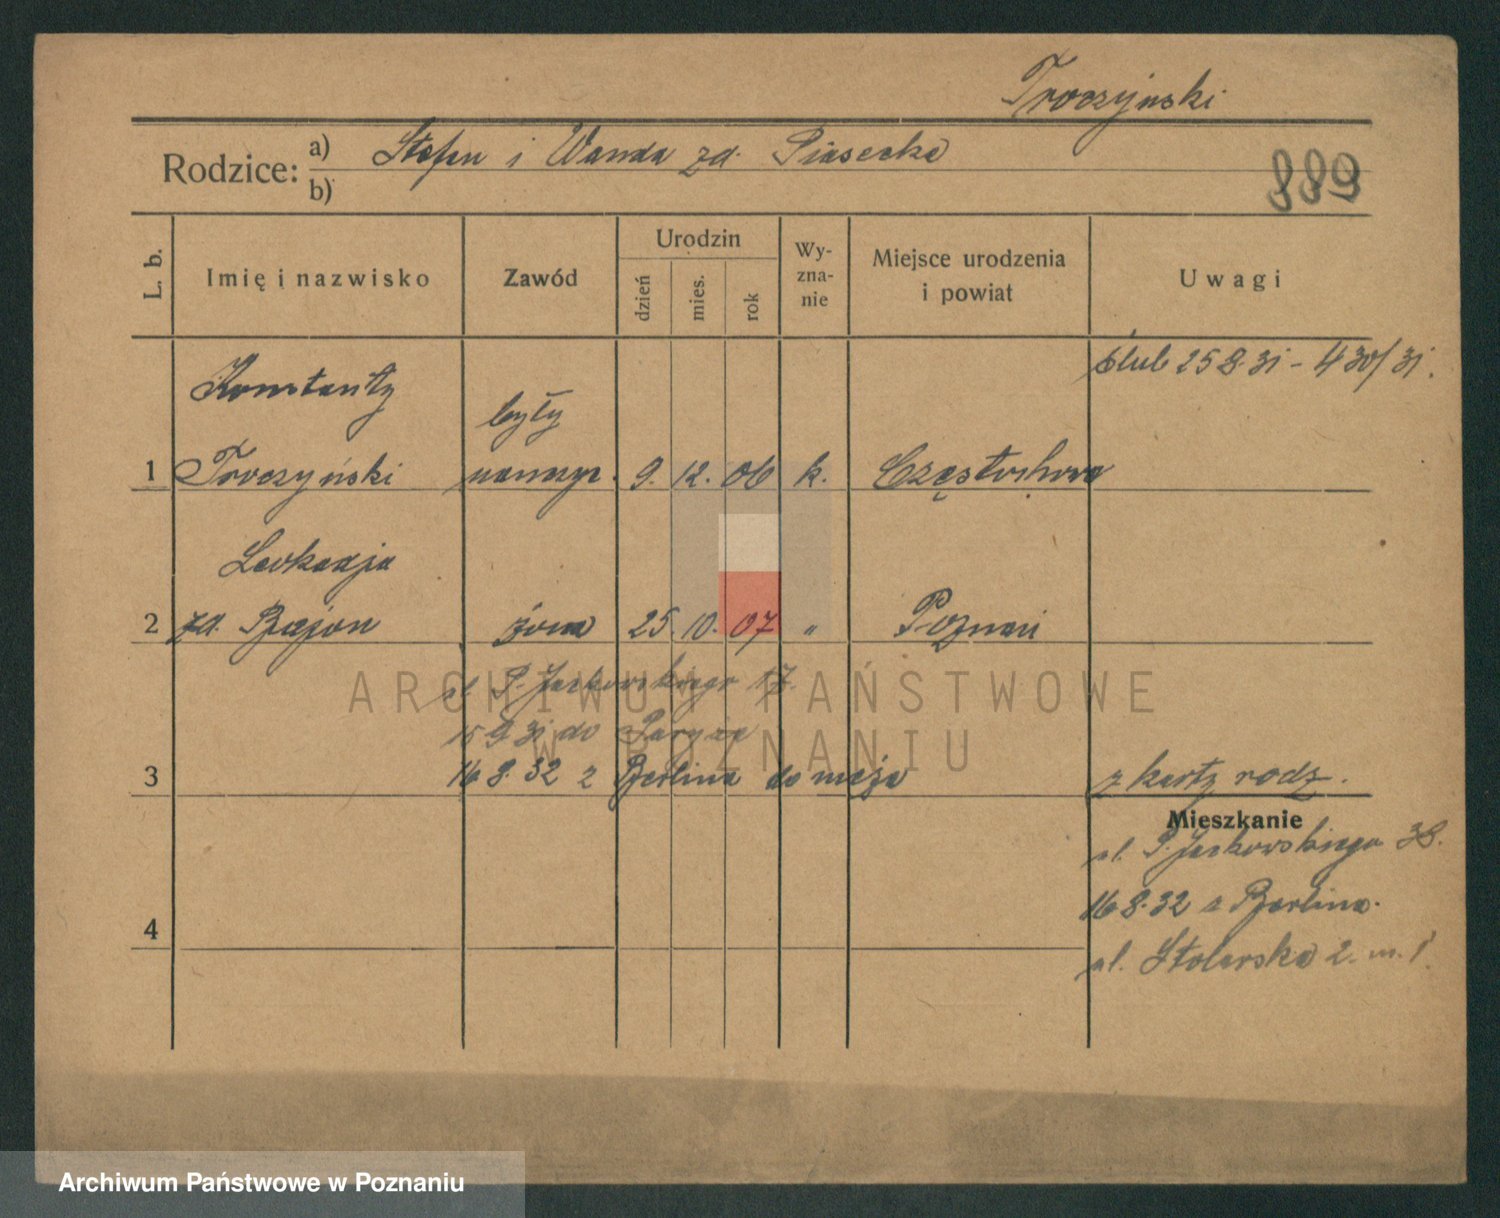 Troczyński
Rodzice: a) Stefan i Wanda zd. Piasecka
b)
889
L. b.
Imię i nazwisko
Zawód
Urodzin
dzień
mies.
rok
Wy-
zna-
nie
Miejsce urodzenia
i powiat
Uwagi
ślub 25 8. 31 - 430/31.
Konstanty
były
1 Troczyński nauczyc. 9. 12. 06 k. Częstochowa
Leokadja
2 zd. Bajon żona 25. 10. 07 " Poznań
ul. P. Jackowskiego 17.
15 9 31 do Paryża
3 16 8. 32 z Berlina do męża
z karty rodz.
Mieszkanie
ul. P. Jackowskiego 38.
16 8. 32 z Berlina.
4
ul. Stolarska 2. m. 1.
ARCHIWUM PAŃSTWOWE
W POZNANIU
Archiwum Państwowe w Poznaniu